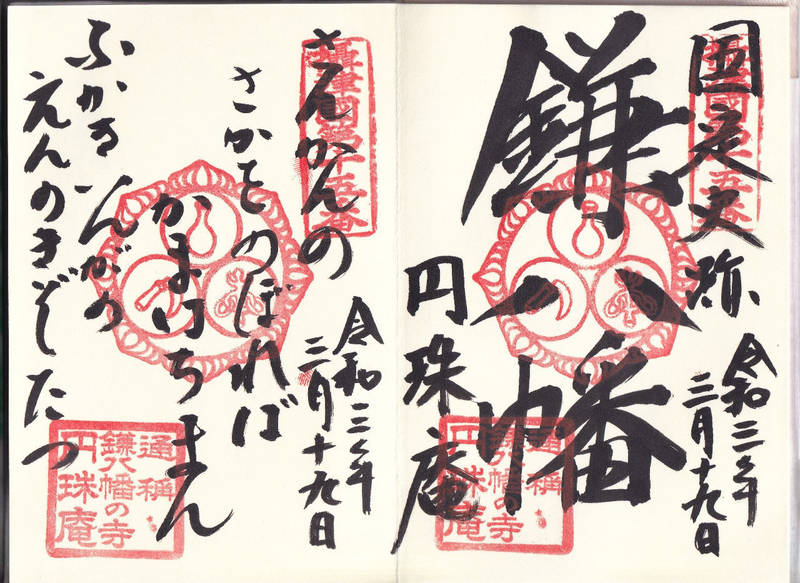 国定史跡
鎌八幡
円珠庵
令和三年
三月十九日
摂津国第十五番
通称
鎌八幡の寺
円珠庵
さんかんの
さかをのぼれば
かまはちまん
ふかき
えんのきぞたつ
令和三年
三月十九日
摂津国第十五番
通称
鎌八幡の寺
円珠庵